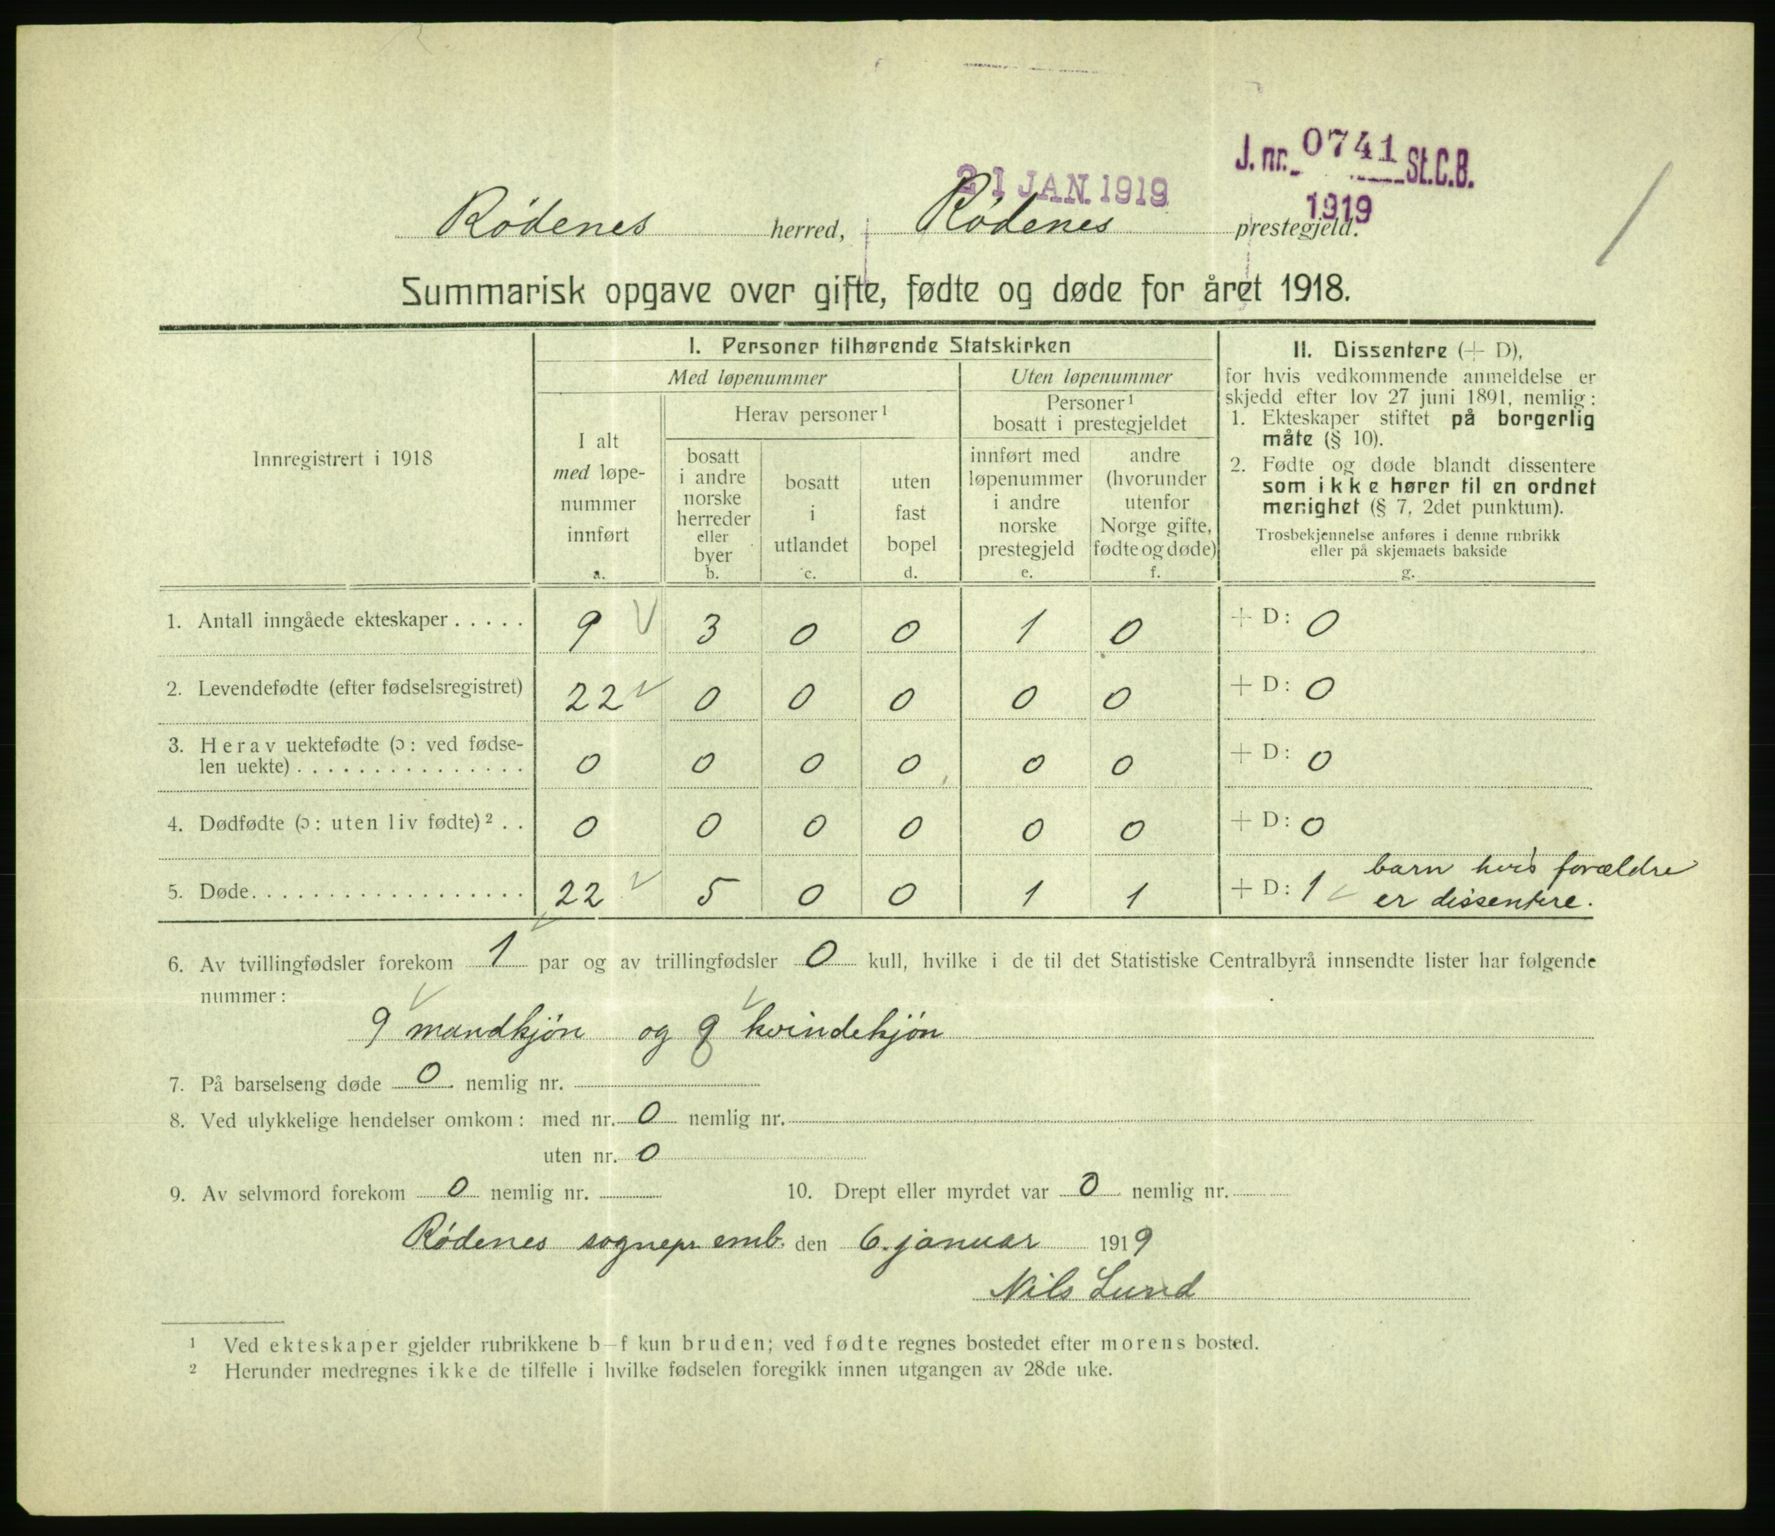 J. nr. 0741 St.C.B.
21 JAN. 1919
1919
Rödenes herred, Rödenes prestegjeld.
Summarisk opgave over gifte, fødte og døde for året 1918.
Innregistrert i 1918
I. Personer tilhørende Statskirken
Med løpenummer
Uten løpenummer
I alt
med løpe-
nummer
innført
a.
Herav personer¹
bosatt
i andre
norske
herreder
eller
byer
b.
bosatt
i
utlandet
c.
uten
fast
bopel
d.
Personer¹
bosatt i prestegjeldet
innført med
løpenummer
i andre
norske
prestegjeld
e.
andre
(hvorunder
utenfor
Norge gifte,
fødte og døde)
f.
II. Dissentere (+ D),
for hvis vedkommende anmeldelse er
skjedd efter lov 27 juni 1891, nemlig:
1. Ekteskaper stiftet på borgerlig
måte (§ 10).
2. Fødte og døde blandt dissentere
som ikke hører til en ordnet
menighet (§ 7, 2det punktum).
Trosbekjennelse anføres i denne rubrikk
eller på skjemaets bakside
g.
1. Antall inngåede ekteskaper..... 9 3 0 0 1 0 + D: 0
2. Levendefødte (efter fødselsregistret) 22 0 0 0 0 0 + D: 0
3. Herav uektefødte (ɔ: ved fødse-
len uekte)............... 0 0 0 0 0 0 + D: 0
4. Dødfødte (ɔ: uten liv fødte)².. 0 0 0 0 0 0 + D: 0
5. Døde.................. 22 5 0 0 1 1 + D: 1 barn hvis forældre
er dissentere.
6. Av tvillingfødsler forekom 1 par og av trillingfødsler 0 kull, hvilke i de til det Statistiske Centralbyrå innsendte lister har følgende
nummer:
9 mandkjön og 9 kvindekjön
7. På barselseng døde 0 nemlig nr.
8. Ved ulykkelige hendelser omkom: med nr. 0 nemlig nr.
uten nr. 0
9. Av selvmord forekom 0 nemlig nr. 10. Drept eller myrdet var 0 nemlig nr.
Rödenes sognepr. emb. den 6. januar 1919
Nils Lund
¹ Ved ekteskaper gjelder rubrikkene b–f kun bruden; ved fødte regnes bostedet efter morens bosted.
² Herunder medregnes ikke de tilfelle i hvilke fødselen foregikk innen utgangen av 28de uke.